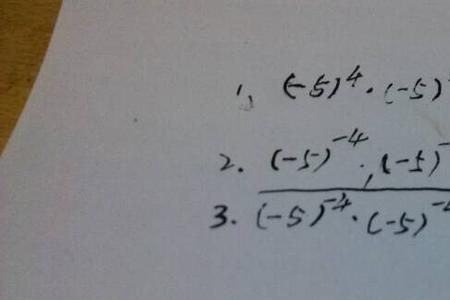 1, (-5)⁴·(-5)⁻
2. (-5)⁻⁴·(-5)⁻
3. (-5)⁻⁴·(-5)⁻⁴